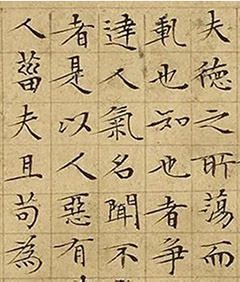 夫德之所蕩而
軋也知也者爭
達人氣名聞不
者是以人惡有
人菑夫且苟為